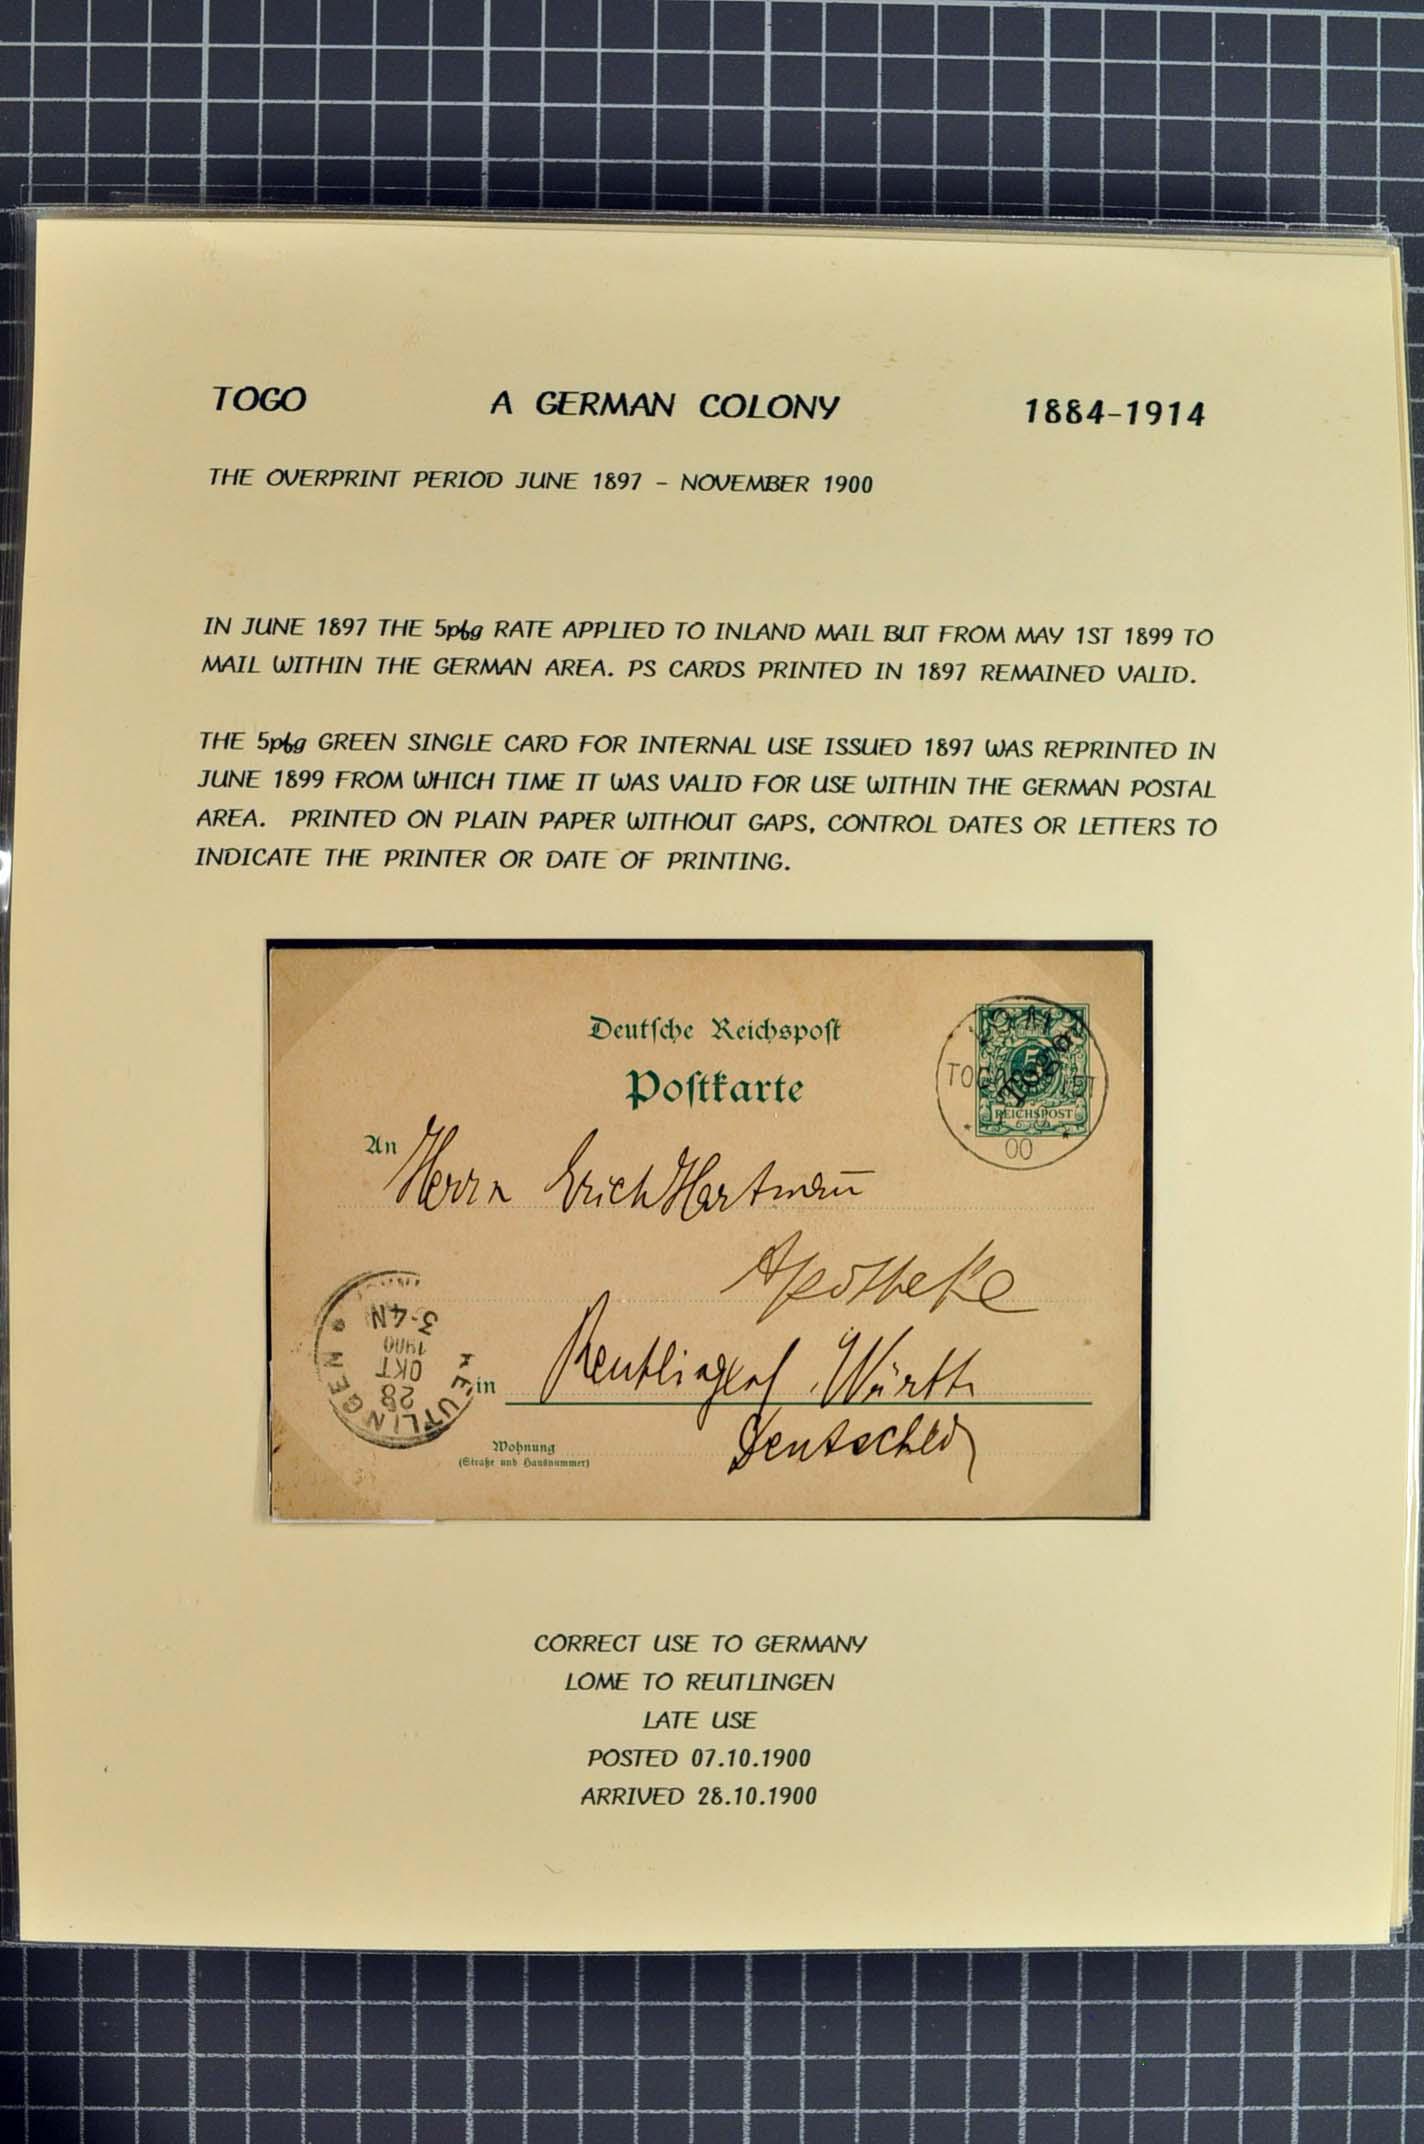 TOGO A GERMAN COLONY 1884-1914
THE OVERPRINT PERIOD JUNE 1897 - NOVEMBER 1900
IN JUNE 1897 THE 5pfg RATE APPLIED TO INLAND MAIL BUT FROM MAY 1ST 1899 TO
MAIL WITHIN THE GERMAN AREA. PS CARDS PRINTED IN 1897 REMAINED VALID.
THE 5pfg GREEN SINGLE CARD FOR INTERNAL USE ISSUED 1897 WAS REPRINTED IN
JUNE 1899 FROM WHICH TIME IT WAS VALID FOR USE WITHIN THE GERMAN POSTAL
AREA. PRINTED ON PLAIN PAPER WITHOUT GAPS, CONTROL DATES OR LETTERS TO
INDICATE THE PRINTER OR DATE OF PRINTING.
Deutsche Reichspost
Postkarte
5
Togo
REICHSPOST
00
An Herrn Erich Hartmann
Apotheke
in Reutlingen, Württ
Deutschld
Wohnung
(Straße und Hausnummer)
REUTLINGEN
28
OKT
1900
3-4N
CORRECT USE TO GERMANY
LOME TO REUTLINGEN
LATE USE
POSTED 07.10.1900
ARRIVED 28.10.1900